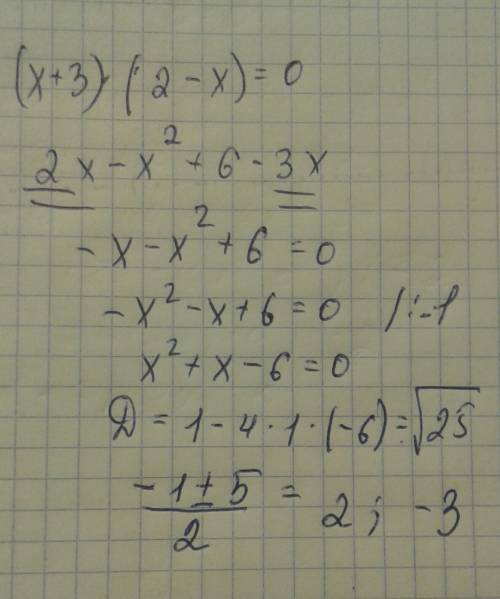 (x+3)·(2-x)=0
2x-x²+6-3x
-x-x²+6=0
-x²-x+6=0 /:-1
x²+x-6=0
D=1-4·1·(-6)=√25
(-1±5)/2 = 2; -3